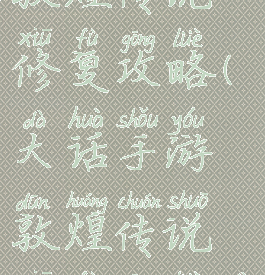 敦煌传说
xiū fù gōng lüè
修复攻略(
dà huà shǒu yóu
大话手游
dūn huáng chuán shuō
敦煌传说